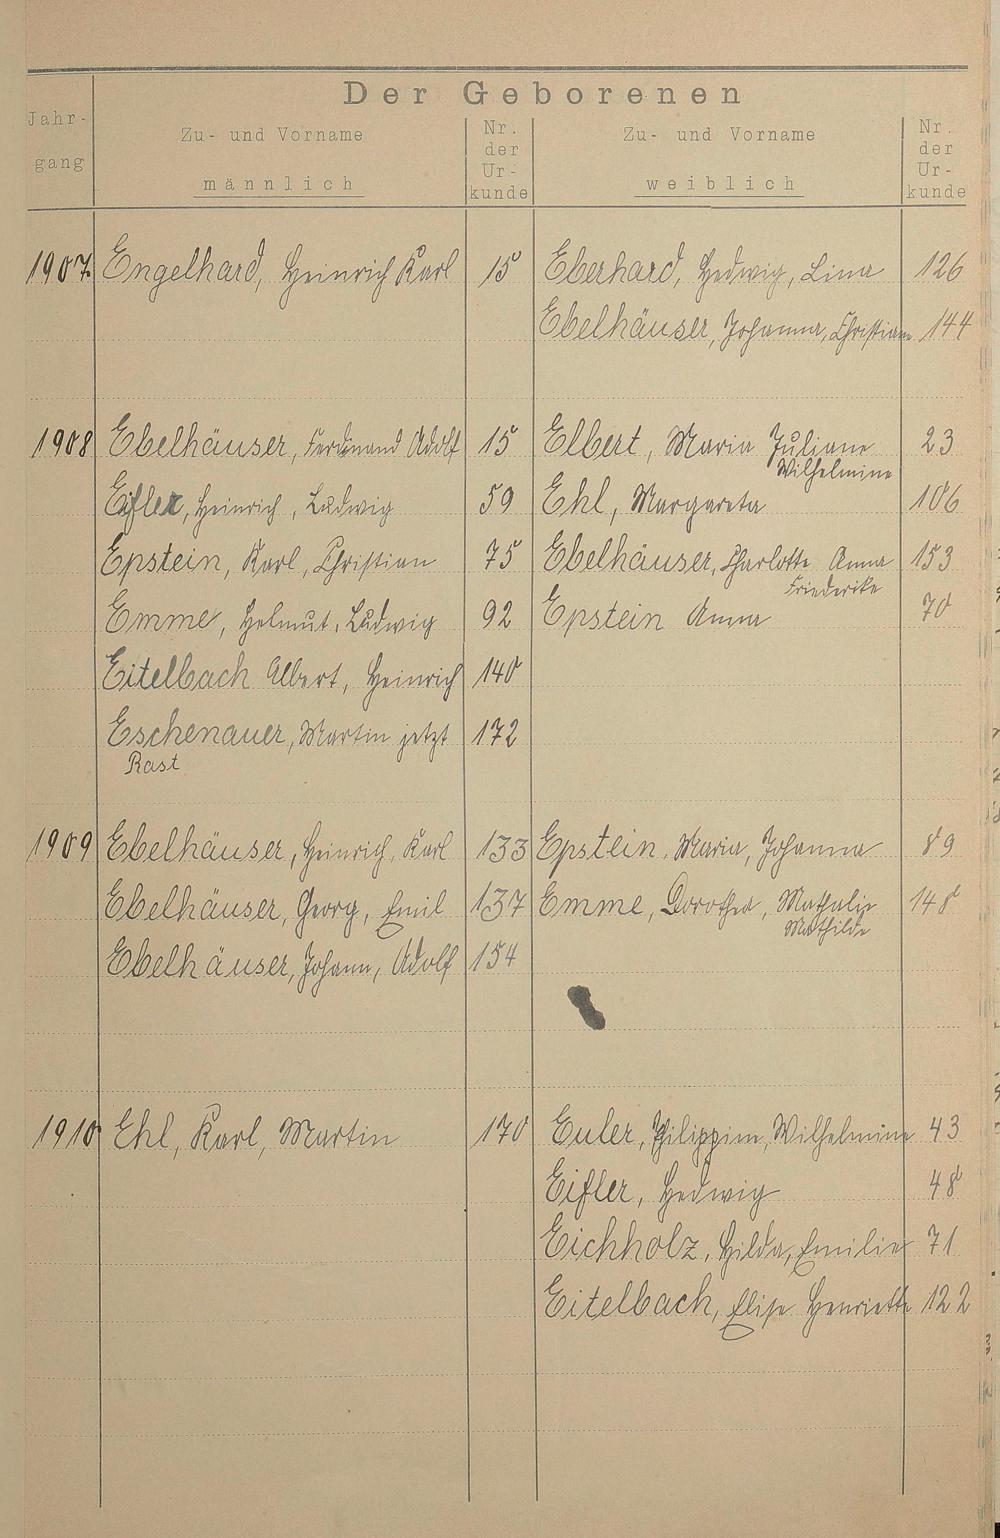 Der Geborenen
Jahr-
gang
Zu- und Vorname
männlich
Nr.
der
Ur-
kunde
Zu- und Vorname
weiblich
Nr.
der
Ur-
kunde
1907 Engelhard, Heinrich Karl 15 Eberhard, Hedwig, Lina 126
Ebelhäuser, Johanna, Christiane 144
1908 Ebelhäuser, Ferdinand Adolf 15 Elbert, Maria Juliane 23
Wilhelmine
Eifler, Heinrich, Ludwig 59 Ehl, Margareta 106
Epstein, Karl, Christian 75 Ebelhäuser, Charlotte Anna 153
Friederike
Emme, Helmut, Ludwig 92 Epstein Anna 70
Eitelbach Albert, Heinrich 140
Eschenauer, Martin jetzt 172
Rast
1909 Ebelhäuser, Heinrich, Karl 133 Epstein, Maria, Johanna 89
Ebelhäuser, Georg, Emil 137 Emme, Dorothea, Mathalie 148
Mathilde
Ebelhäuser, Johann, Adolf 154
1910 Ehl, Karl, Martin 170 Euler, Philippine, Wilhelmine 43
Eifler, Hedwig 48
Eichholz, Hilda, Emilie 71
Eitelbach, Elise Henriette 122